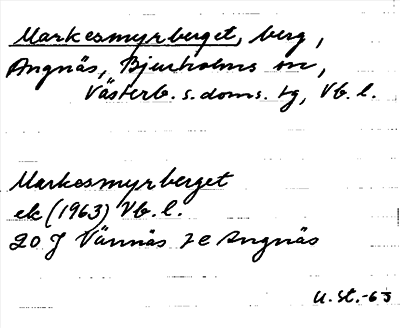 Markesmyrberget, berg,
Angnäs, Bjurholms sn,
Västerb. s. doms. tg, Vb. l.
Markesmyrberget
ek (1963) Vb. l.
20 J Vännäs 7e Angnäs
U. St. -63